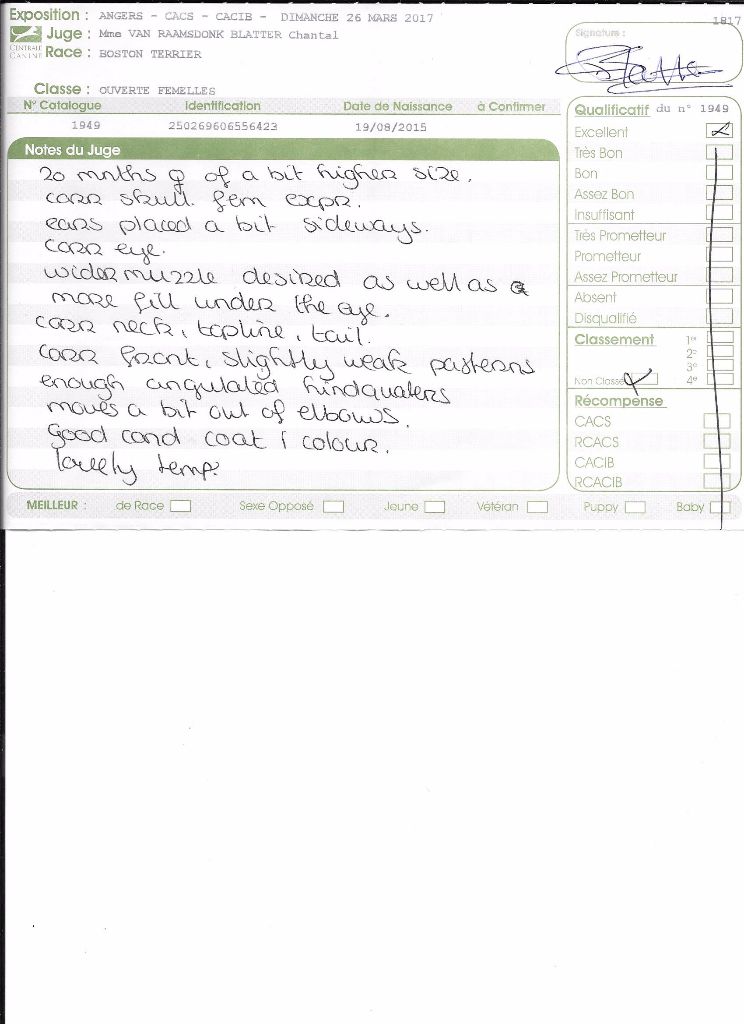 Exposition : ANGERS - CACS - CACIB - DIMANCHE 26 MARS 2017
1817
CENTRALE CANINE
Juge : Mme VAN RAAMSDONK BLATTER Chantal
Race : BOSTON TERRIER
Signature :
Classe : OUVERTE FEMELLES
N° Catalogue Identification Date de Naissance à Confirmer
1949 250269606556423 19/08/2015
Notes du Juge
20 mnths ♀ of a bit higher size.
corr skull fem expr.
ears placed a bit sideways.
corr eye.
wider muzzle desired as well as
more fill under the eye.
corr neck, topline, tail.
corr front, slightly weak pasterns
enough angulated hindquaters
moves a bit out of elbows.
Good cond coat / colour.
lovely temp.
Qualificatif du n° 1949
Excellent
Très Bon
Bon
Assez Bon
Insuffisant
Très Prometteur
Prometteur
Assez Prometteur
Absent
Disqualifié
Classement 1er
2e
3e
Non Classé 4e
Récompense
CACS
RCACS
CACIB
RCACIB
MEILLEUR : de Race Sexe Opposé Jeune Vétéran Puppy Baby